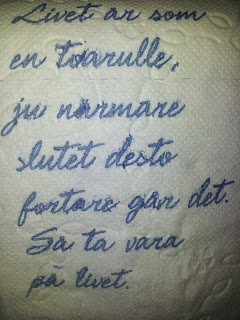 Livet är som
en toarulle,
ju närmare
slutet desto
fortare går det.
Så ta vara
på livet.